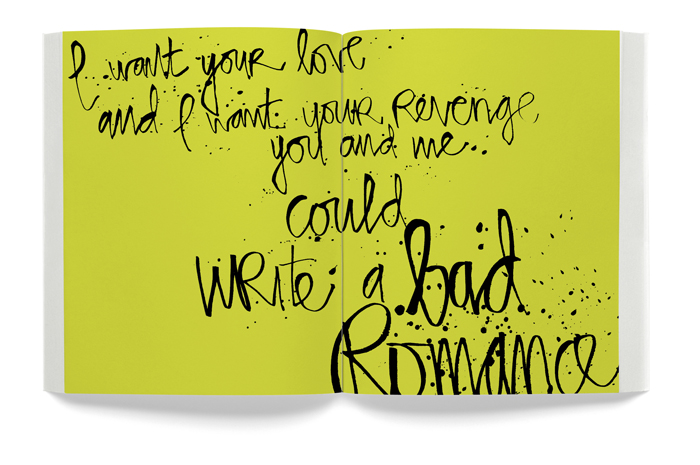 I want your love
and I want your Revenge
you and me..
could
WRITE a bad
Romance